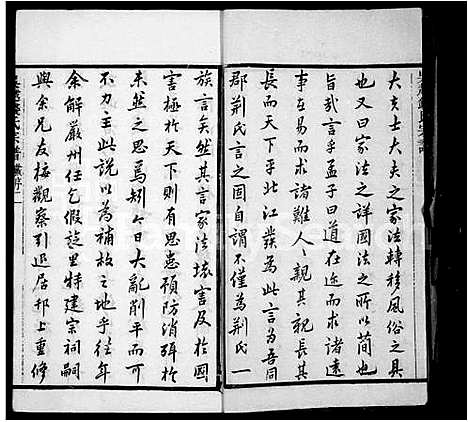 大夫士大夫之家法轉移風俗之具
也又曰家法之詳國法之所以簡也
旨哉言乎孟子曰道在迩而求諸遠
事在易而求諸難人人親其親長其
長而天下平北江發為此言為吾同
郡荆氏言固自謂不僅為荆氏一
族言矣然言家法壞害及於國
害極於天下則有思患預防消弭於
未然之思焉矧今日大亂削平而可
不力主此說以為補救之地乎往年
余解嚴州任乞假旋里特建宗祠嗣
與余兄友梅觀察引退居邗上重修
氏宗譜